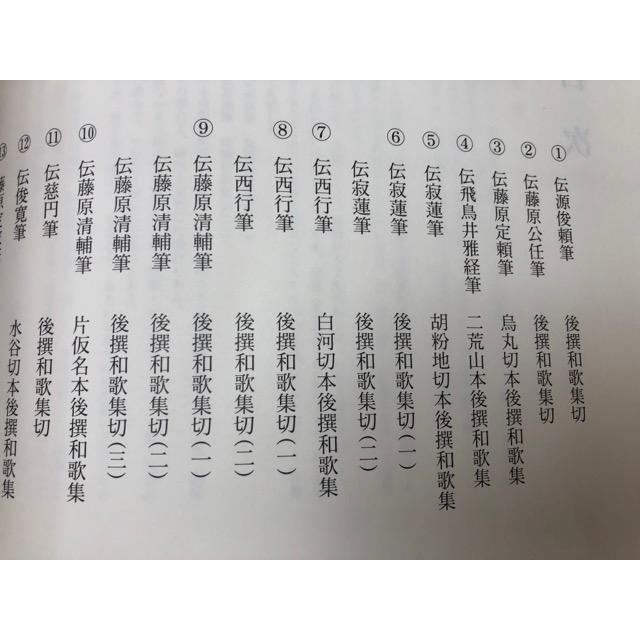 目次
① 伝源俊頼筆 後撰和歌集切
② 伝藤原公任筆 後撰和歌集切
③ 伝藤原定頼筆 烏丸切本後撰和歌集
④ 伝飛鳥井雅経筆 二荒山本後撰和歌集
⑤ 伝寂蓮筆 胡粉地切本後撰和歌集
⑥ 伝寂蓮筆 後撰和歌集切(一)
伝寂蓮筆 後撰和歌集切(二)
⑦ 伝西行筆 白河切本後撰和歌集
⑧ 伝西行筆 後撰和歌集切(一)
伝西行筆 後撰和歌集切(二)
⑨ 伝藤原清輔筆 後撰和歌集切(一)
伝藤原清輔筆 後撰和歌集切(二)
伝藤原清輔筆 後撰和歌集切(三)
⑩ 伝藤原清輔筆 片仮名本後撰和歌集
⑪ 伝慈円筆 後撰和歌集切
⑫ 伝俊寛筆 水谷切本後撰和歌集
⑬